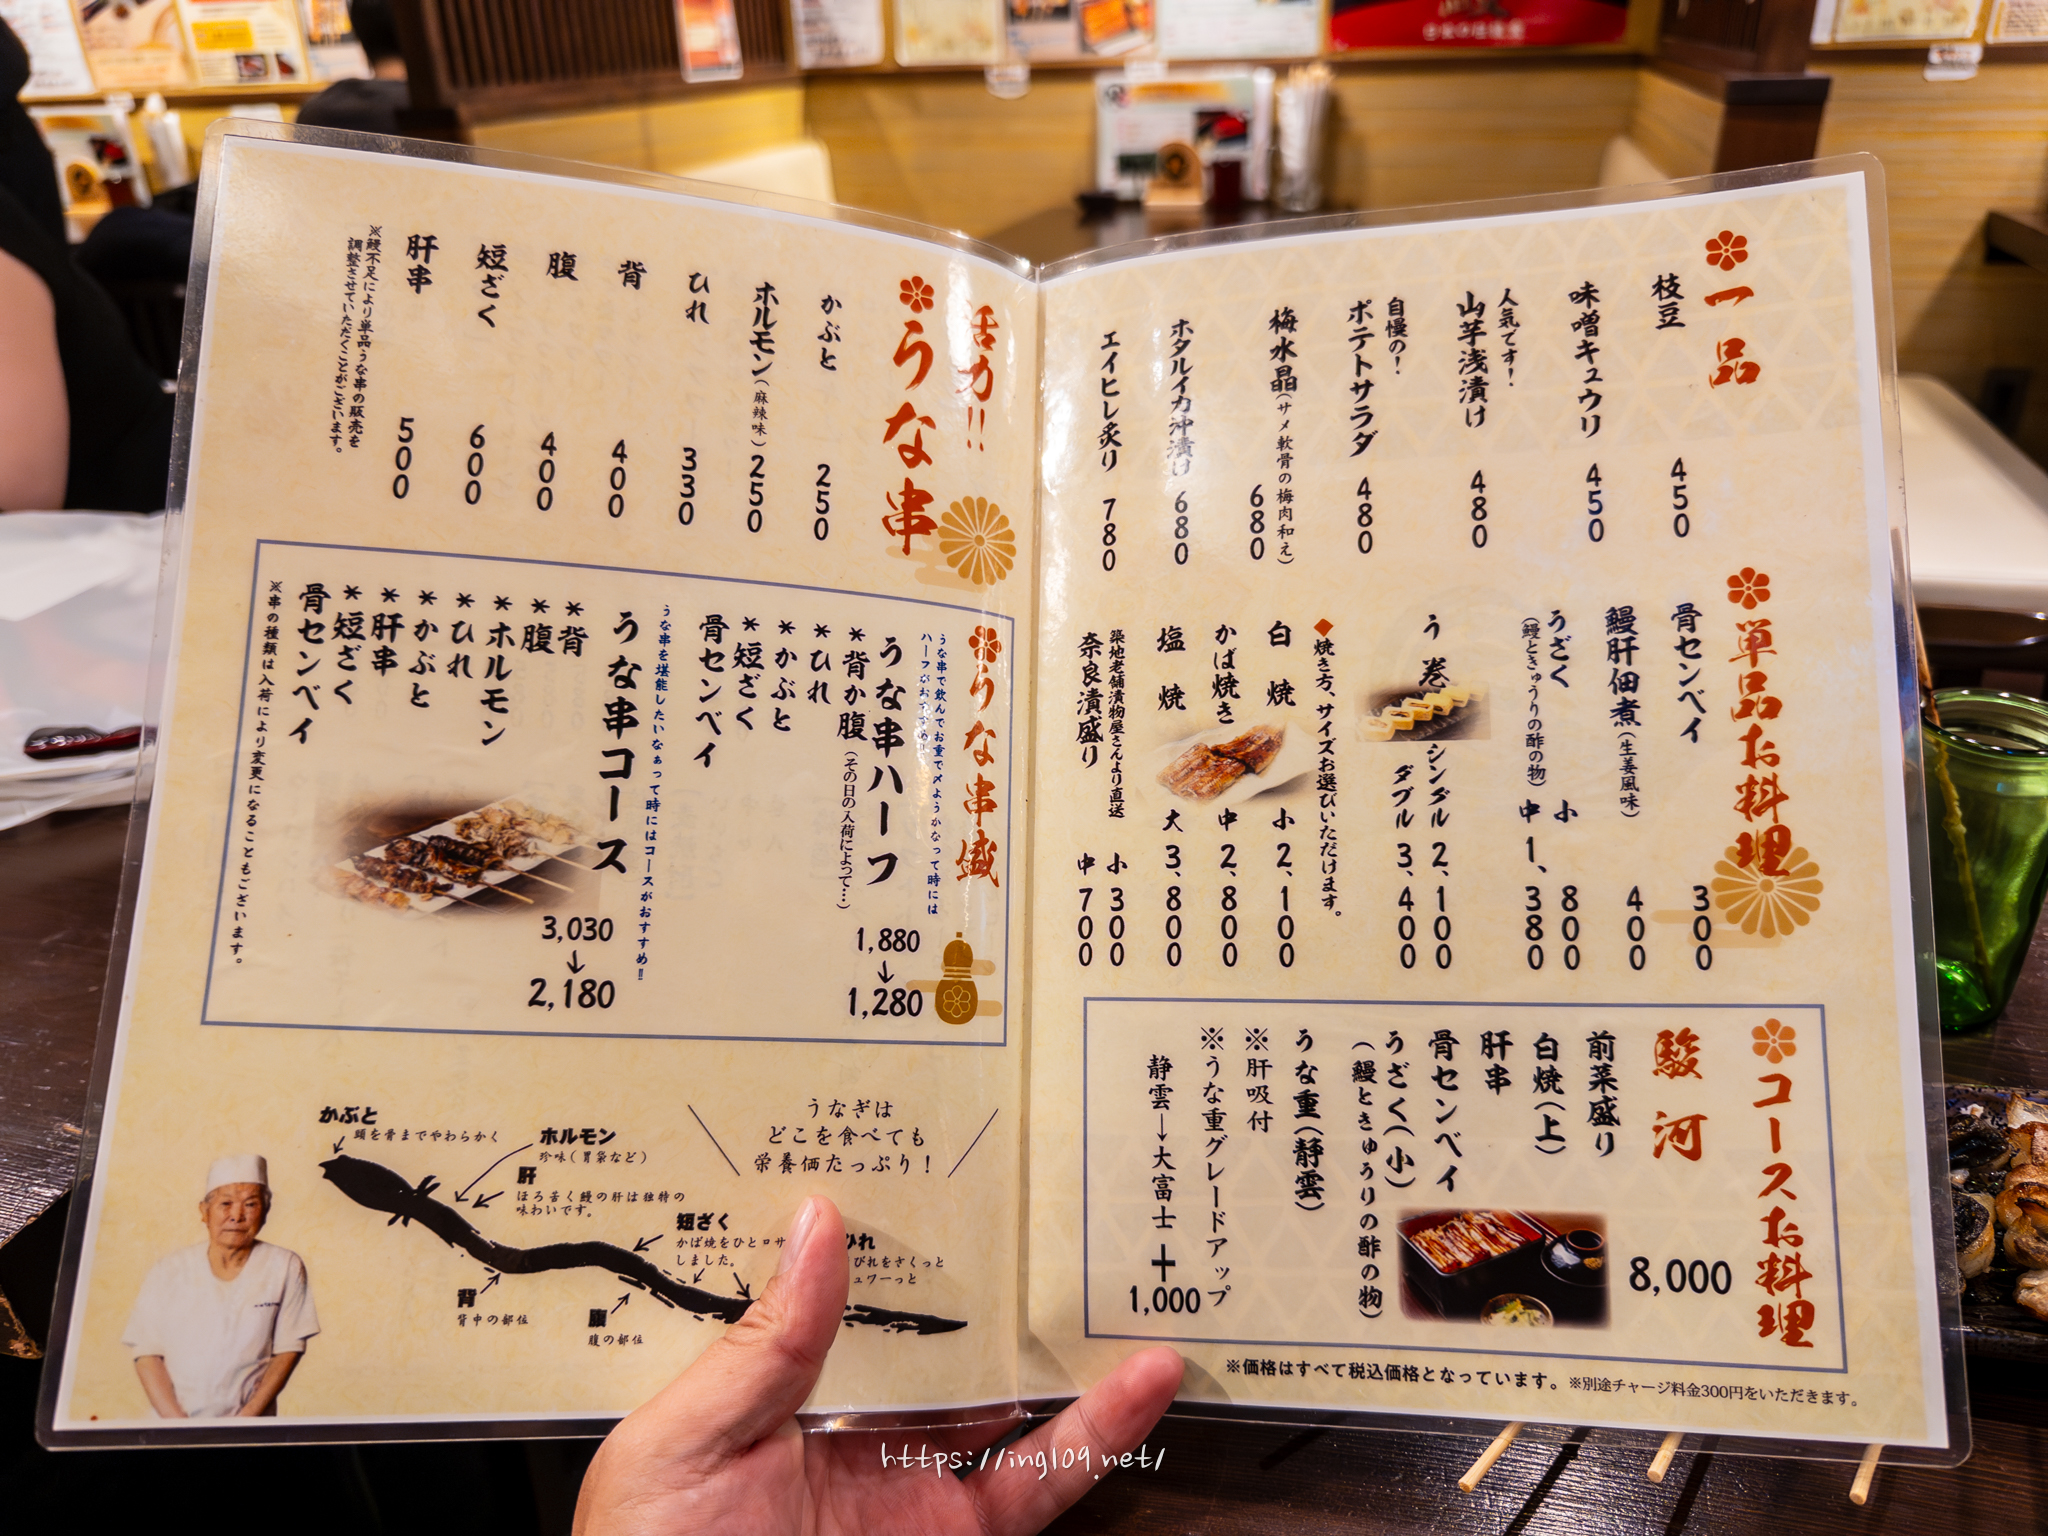 一品
枝豆 450
味噌キュウリ 450
人気です!
山芋浅漬け 480
自慢の!
ポテトサラダ 480
梅水晶(サメ軟骨の梅肉和え) 680
ホタルイカ沖漬け 680
エイヒレ炙り 780
単品お料理
骨センベイ 300
鰻肝佃煮(生姜風味) 400
うざく 小 800
(鰻ときゅうりの酢の物) 中 1,380
う巻 シングル 2,100
ダブル 3,400
◆焼き方、サイズお選びいただけます。
白焼 小 2,100
かば焼き 中 2,800
塩焼 大 3,800
築地老舗漬物屋さんより直送 小 300
奈良漬盛り 中 700
コースお料理
駿河
8,000
前菜盛り
白焼(上)
肝串
骨センベイ
うざく(小)
(鰻ときゅうりの酢の物)
うな重(静雲)
※肝吸付
※うな重グレードアップ
静雲→大富士+1,000
※価格はすべて税込価格となっています。※別途チャージ料金300円をいただきます。
活力!!
うな串
かぶと 250
ホルモン(麻辣味) 250
ひれ 330
背 400
腹 400
短ざく 600
肝串 500
※鰻不足により単品うな串の販売を
調整させていただくことがございます。
うな串盛
うな串で飲んでお重で〆ようかなって時には
ハーフがおすすめ!
うな串ハーフ
1,880
↓
1,280
*背か腹(その日の入荷によって…)
*ひれ
*かぶと
*短ざく
骨センベイ
うな串を堪能したいなぁって時にはコースがおすすめ!!
うな串コース
3,030
↓
2,180
*背
*腹
*ホルモン
*ひれ
*かぶと
*肝串
*短ざく
骨センベイ
※串の種類は入荷により変更になることもございます。
うなぎは
どこを食べても
栄養価たっぷり!
かぶと
頭を骨までやわらかく
ホルモン
珍味(胃袋など)
肝
ほろ苦く鰻の肝は独特の
味わいです。
短ざく
かば焼をひとロサ
しました。
ひれ
びれをさくっと
ュワーっと
背
背中の部位
腹
腹の部位
https://ing109.net/